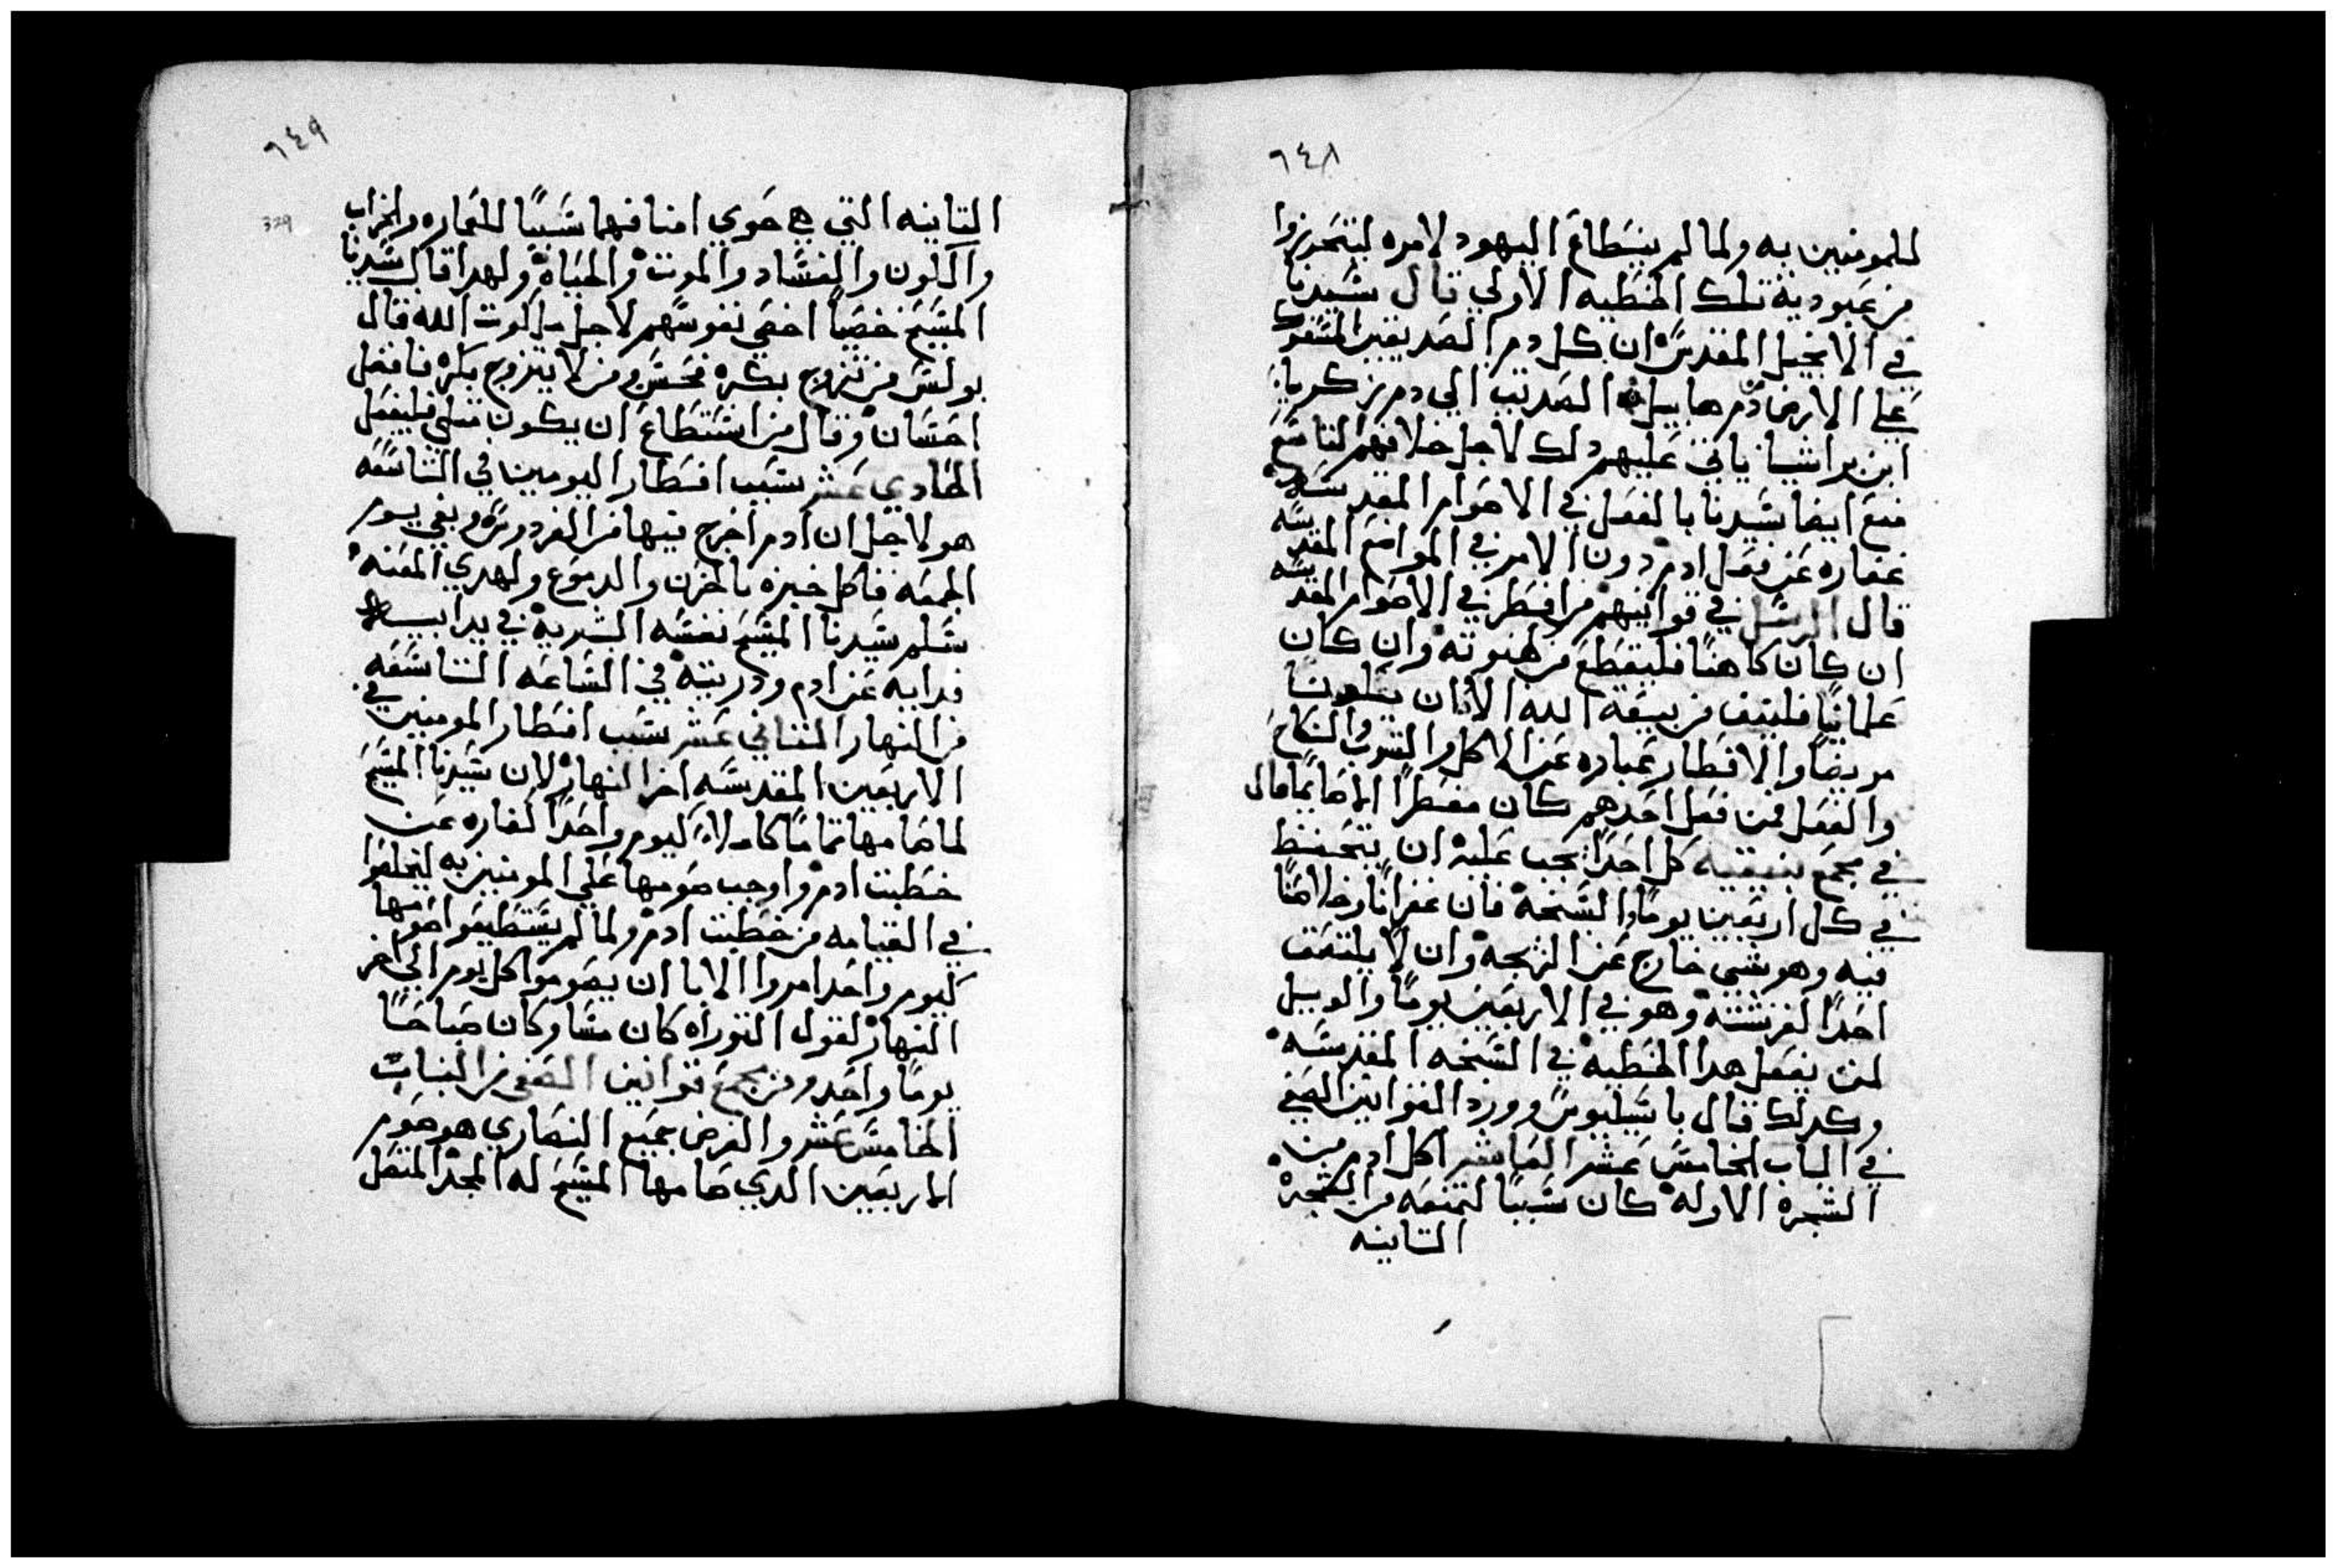 ٦٤٨
للمومنين به ولما لم ينسطاع اليهود لامره ليتحرزوا
من عبودية تلك الخطيه الاولي قال سيدنا
في الانجيل المقدس ان كل دم الصديقين المسفوك
علي الارض دم هابيل الصديق الي دم زكريا
ابن براشيا ياتي عليهم دلك لاجل خلافهم التاسع
منع ايضا سيدنا بالفعل في الاصوام المقدسه
غفاره عن فعل ادم دون الامر في المواضع المقدسه
قال الرسل في قوانينهم من افطر في الاصوام المقدسه
ان كان كاهنًا فليقطع من كهنوته وان كان
علمانيًا فلينف من بيعة الله الا ان يكون
مريضا والافطار عباره عن الاكل والشرب والنكاح
والفعل فمن فعل احدهم كان مفطرًا لا صايمًا قال
في مجمع نيقيه كل احدًا يجب عليه ان يتحفظ
في كل اربعين يومًا السنخه فان غفرانًا وخلاصًا
فيه وهو شي خارج عن البهجه وان لا يلتفت
احدًا لفرشته وهو في الاربعين يومًا والويل
لمن يفعل هدا الخطيه في السنخه المقدسه
وكدلك قال باسيليوس وورد القوانين الصفي
في الباب الخامس عشر العاشر اكل ادم من
الشجره الاوله كان سببًا لتمنعه من الشجره
التانيه
٦٤٩
329
التانيه التي هي حوي امنا فهما سببًا للعماره والخراب
والكون والفساد والموت والحياه ولهدا قال سيدنا
المسيح خصيًا اخصي نفوسهم لاجل ملكوت الله قال
بولس من تزوج بكره فحسن ومن لا يتزوج بكره فافضل
احسان وقال من استطاع ان يكون متلي فليفعل
الحادي عشر سبب افطار اليومين في التاسعه
هو لاجل ان ادم اخرج فيها من الفردوس وبقي يوم
الجمعه فاكل خبزه بالحزن والدموع ولهدي المعنه
سلم سيدنا المسيح نفسه البشريه في يد ابيه
فدايه عن ادم ودريته في الساعه التاسعه
من النهار التاني عشر سبب افطار المومنين في
الاربعين المقدسه اخر النهار لان سيدنا المسيح
لما صامها تمامًا كاملاً كيوم واحدًا كفاره عن
خطيت ادم واوجب صومها علي المومنين به ليخلصوا
في القيامه من خطيت ادم ولما لم يستطيعوا صومها
كيوم واحد امروا الابا ان يصوموا كل يوم الي اخر
النهار لقول التوراه كان مسا وكان صباحًا
يومًا واحد ومن مجمع قوانين الصفي من الباب
الخامس عشر والفرض بجميع النصاري هو صوم
الاربعين الدي صامها المسيح له المجد المتصل